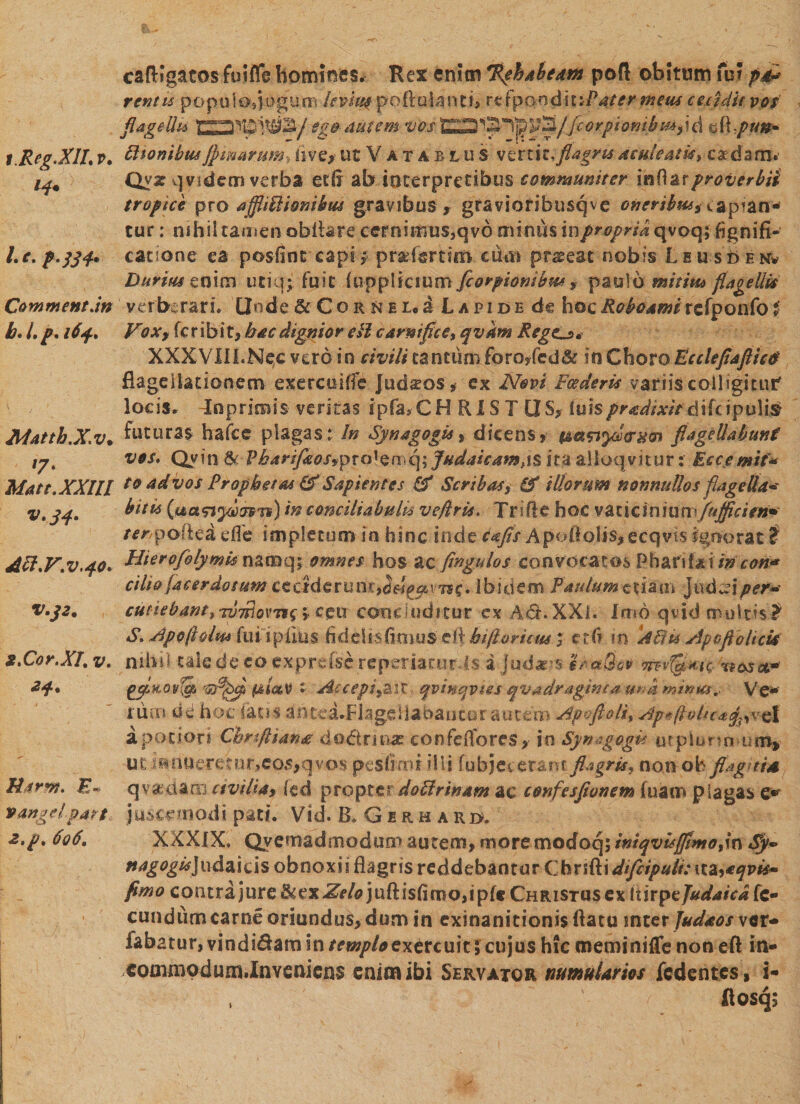 castigatos fuisse homines. Rex enim Rehabeam post obitum sui pa-
rentis populo, jugum levius postulanti, respondit: Pater meus cecidit vos
flagellis ego autem vos scorpionibus, id est. pun-
1.Reg.XII. v. ctionibus spinarum, sive, ut VATABLUS vertit. flagris aculeatis, cædam.
14. Qvæ qvidem verba etsi ab interpretibus communiter instar proverbii
tropicè pro afflictionibus gravibus, gravioribusqve oneribus, capian-
tur: nihil tamen obstare cernimus, qvò minùs in propriâ qvoq; signifi-
l.c. p.334. catione ea possint capi; præsertim cùm præeat nobis LEUSDEN.
Durius enim utiq; fuit supplicium scorpionibus, paulò mitius flagellis
Comment.in verberari. Unde & CORNEL. à LAPIDE de hoc Roboami responso:
h. l. p. 164. Vox, scribit, hæc dignior est carnifice, qvàm Rege.
XXXVIII. Nec verò in civili tantùm foro, sed & in Choro Ecclesiastico
flagellationem exercuisse Judæos, ex Novi Fœderis variis colligitur
locis. Inprimis veritas ipsa, CHRISTUS, suis prædixit discipulis
Matth.X.v. futuras hasce plagas: In Synagogis, dicens, μαστιγώσουσι flagellabunt
17. vos. Qvin & Pharisæos, problemq; Judaicam, is ita alloqvitur: Ecce mit-
Matt.XXIII to ad vos Prophetas & Sapientes & Scribas, & illorum nonnullos flagella-
v.34. bitis (μαστιγώσετε) in conciliabulis vestris. Triste hoc vaticinium sufficien-
ter posteà esse impletum in hinc inde cæsis Apostolis, ecqvis ignorat?
Act.V.v.40. Hierosolymis namq; omnes hos ac singulos convocatos Pharisæi in con-
cilio sacerdotum ceciderunt, δείραντες. Ibidem Paulum etiam Judæi per-
v.32. cutiebant, τύπτοντες; ceu concluditur ex Act. XXI. Imò qvid multis?
S. Apostolus sui ipsius fidelissimus est historicus; etsi in Actis Apostolicis
2.Cor.XI. v. nihil tale de eo expressè reperiatur. Is à Judæis
24. : Accepi, ait qvinqvies qvadraginta unâ minus. Ve-
rùm de hoc satis anteà. Flagellabantur autem Apostoli, Apostolicæq;, vel
à potiori Christianæ doctrinæ confessores, in Synagogis utplurimùm,
ut innueretur, eos, qvos pessimi illi subjecerant flagris, non ob flagitia
Harm. E- qvædam civilia, sed propter doctrinam ac confessionem suam plagas e-
vangel part juscemodi pati. Vid. B. GERHARD.
2.p. 606. XXXIX. Qvemadmodum autem, more modoq; iniqvissimo, in Sy-
nagogis Judaicis obnoxii flagris reddebantur Christi discipuli: ita, æqvis-
simo contrà jure & ex Zelo justissimo, ipse CHRISTUS ex stirpe Judaicâ se-
cundùm carnè oriundus, dum in exinanitionis statu inter Judæos ver-
sabatur, vindictam in templo exercuit; cujus hîc meminisse non est in-
commodum. Inveniens enim ibi SERVATOR numularios sedentes, i-
stosq;